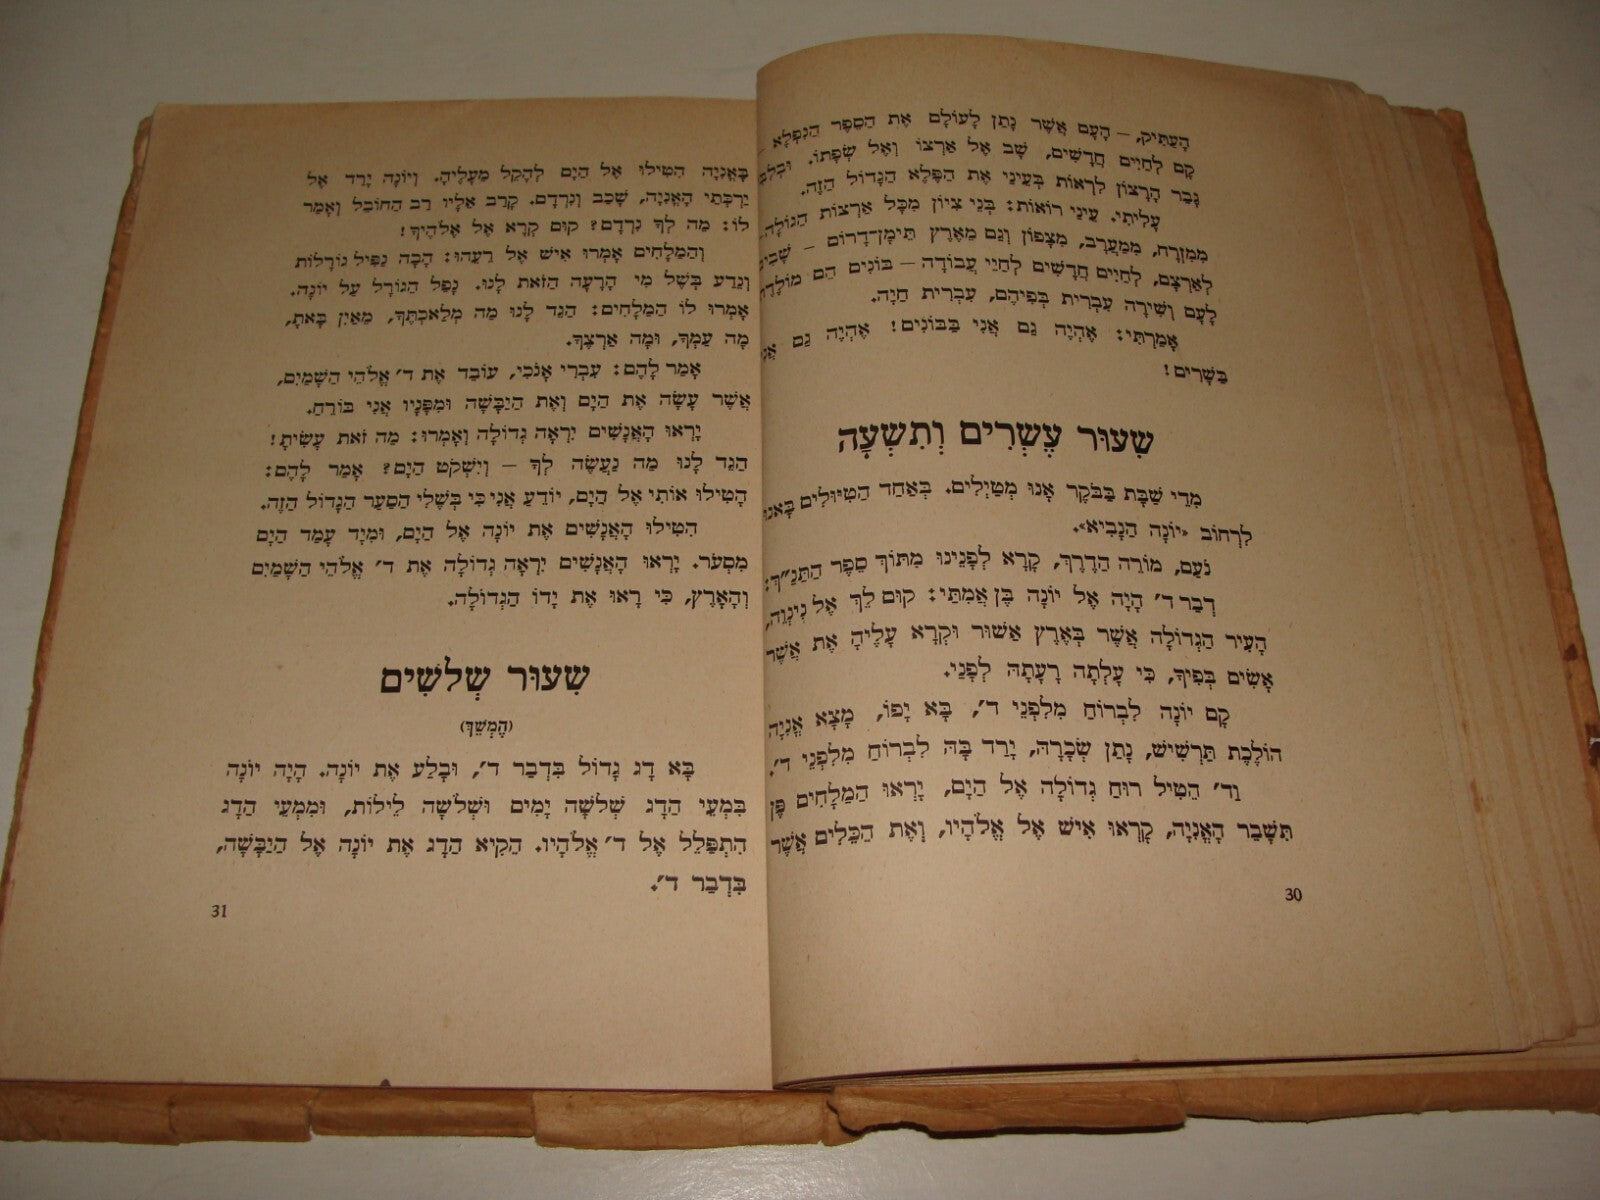 הָעַתִּיק, – הָעָם אֲשֶׁר נָתַן לָעוֹלָם אֶת הַסֵּפֶר הַנִּפְלָא –
קָם לְחַיִּים חֲדָשִׁים, שָׁב אֶל אַרְצוֹ וְאֶל שְׂפָתוֹ. וּבְלִבִּי
גָּבַר הָרָצוֹן לִרְאוֹת בְּעֵינַי אֶת הַפֶּלֶא הַגָּדוֹל הַזֶּה.
עָלִיתִי. עֵינַי רוֹאוֹת: בְּנֵי צִיּוֹן מִכָּל אַרְצוֹת הַגּוֹלָה,
מִמִּזְרָח, מִמַּעֲרָב, מִצָּפוֹן וְגַם מֵאֶרֶץ תֵּימָן־דָּרוֹם – שָׁבִים
לְאַרְצָם, לְחַיִּים חֲדָשִׁים לְחַיֵּי עֲבוֹדָה – בּוֹנִים הֵם מוֹלֶדֶת
לָעָם וְשִׁירָה עִבְרִית בְּפִיהֶם, עִבְרִית חַיָּה.
אָמַרְתִּי: אֶהְיֶה גַם אֲנִי בַּבּוֹנִים! אֶהְיֶה גַם אֲנִי
בַּשָּׁרִים!
שִׁעוּר עֶשְׂרִים וְתִשְׁעָה
מִדֵּי שַׁבָּת בַּבֹּקֶר אָנוּ מְטַיְּלִים. בְּאַחַד הַטִּיּוּלִים בָּאנוּ
לִרְחוֹב «יוֹנָה הַנָּבִיא».
נֹעַם, מוֹרֵה הַדֶּרֶךְ, קָרָא לְפָנֵינוּ מִתּוֹךְ סֵפֶר הַתַּנַ״ךְ:
דְּבַר ד׳ הָיָה אֶל יוֹנָה בֶּן אֲמִתַּי: קוּם לֵךְ אֶל נִינְוֵה,
הָעִיר הַגְּדוֹלָה אֲשֶׁר בְּאֶרֶץ אַשּׁוּר וּקְרָא עָלֶיהָ אֶת אֲשֶׁר
אָשִׂים בְּפִיךָ, כִּי עָלְתָה רָעָתָהּ לְפָנַי.
קָם יוֹנָה לִבְרוֹחַ מִלִּפְנֵי ד׳, בָּא יָפוֹ, מָצָא אֳנִיָּה
הוֹלֶכֶת תַּרְשִׁישׁ, נָתַן שְׂכָרָהּ, יָרַד בָּהּ לִבְרוֹחַ מִלִּפְנֵי ד׳.
וַד׳ הֵטִיל רוּחַ גְּדוֹלָה אֶל הַיָּם, יָרְאוּ הַמַּלָּחִים פֶּן
תִּשָּׁבֵר הָאֳנִיָּה, קָרְאוּ אִישׁ אֶל אֱלֹהָיו, וְאֶת הַכֵּלִים אֲשֶׁר
30
בָּאֳנִיָּה הֵטִילוּ אֶל הַיָּם לְהָקֵל מֵעָלֶיהָ. וְיוֹנָה יָרַד אֶל
יַרְכְּתֵי הָאֳנִיָּה, שָׁכַב וְנִרְדָּם. קָרַב אֵלָיו רַב הַחוֹבֵל וְאָמַר
לוֹ: מַה לְּךָ נִרְדָּם? קוּם קְרָא אֶל אֱלֹהֶיךָ!
וְהַמַּלָּחִים אָמְרוּ אִישׁ אֶל רֵעֵהוּ: הָבָה נַפִּיל גּוֹרָלוֹת
וְנֵדַע בְּשֶׁל מִי הָרָעָה הַזֹּאת לָנוּ. נָפַל הַגּוֹרָל עַל יוֹנָה.
אָמְרוּ לוֹ הַמַּלָּחִים: הַגֵּד לָנוּ מַה מְּלַאכְתֶּךָ, מֵאַיִן בָּאתָ,
מָה עַמְּךָ, וּמָה אַרְצֶךָ.
אָמַר לָהֶם: עִבְרִי אָנֹכִי, עוֹבֵד אֶת ד׳ אֱלֹהֵי הַשָּׁמַיִם,
אֲשֶׁר עָשָׂה אֶת הַיָּם וְאֶת הַיַּבָּשָׁה וּמִפָּנָיו אֲנִי בּוֹרֵחַ.
יָרְאוּ הָאֲנָשִׁים יִרְאָה גְדוֹלָה וְאָמְרוּ: מַה זֹּאת עָשִׂיתָ!
הַגֵּד לָנוּ מַה נַּעֲשֶׂה לְךָ – וְיִשְׁקֹט הַיָּם? אָמַר לָהֶם:
הָטִילוּ אוֹתִי אֶל הַיָּם, יוֹדֵעַ אֲנִי כִּי בְשֶׁלִּי הַסַּעַר הַגָּדוֹל הַזֶּה.
הֵטִילוּ הָאֲנָשִׁים אֶת יוֹנָה אֶל הַיָּם, וּמִיָּד עָמַד הַיָּם
מִסַּעַר. יָרְאוּ הָאֲנָשִׁים יִרְאָה גְדוֹלָה אֶת ד׳ אֱלֹהֵי הַשָּׁמַיִם
וְהָאָרֶץ, כִּי רָאוּ אֶת יָדוֹ הַגְּדוֹלָה.
שִׁעוּר שְׁלֹשִׁים
(הֶמְשֵׁךְ)
בָּא דָג גָּדוֹל בִּדְבַר ד׳, וּבָלַע אֶת יוֹנָה. הָיָה יוֹנָה
בִּמְעֵי הַדָּג שְׁלֹשָׁה יָמִים וּשְׁלֹשָׁה לֵילוֹת, וּמִמְּעֵי הַדָּג
הִתְפַּלֵּל אֶל ד׳ אֱלֹהָיו. הֵקִיא הַדָּג אֶת יוֹנָה אֶל הַיַּבָּשָׁה,
בִּדְבַר ד׳.
31